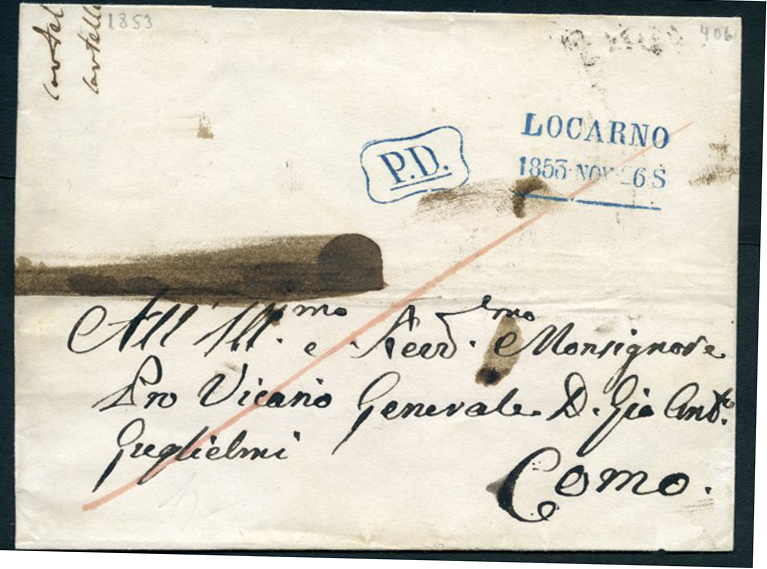 1853
406
P.D.
LOCARNO
1853 NOV 26 S
All Ill.mo e Revd.mo Monsignore
Pro Vicario Generale D. Gio Ant.o
Guglielmi
Como.